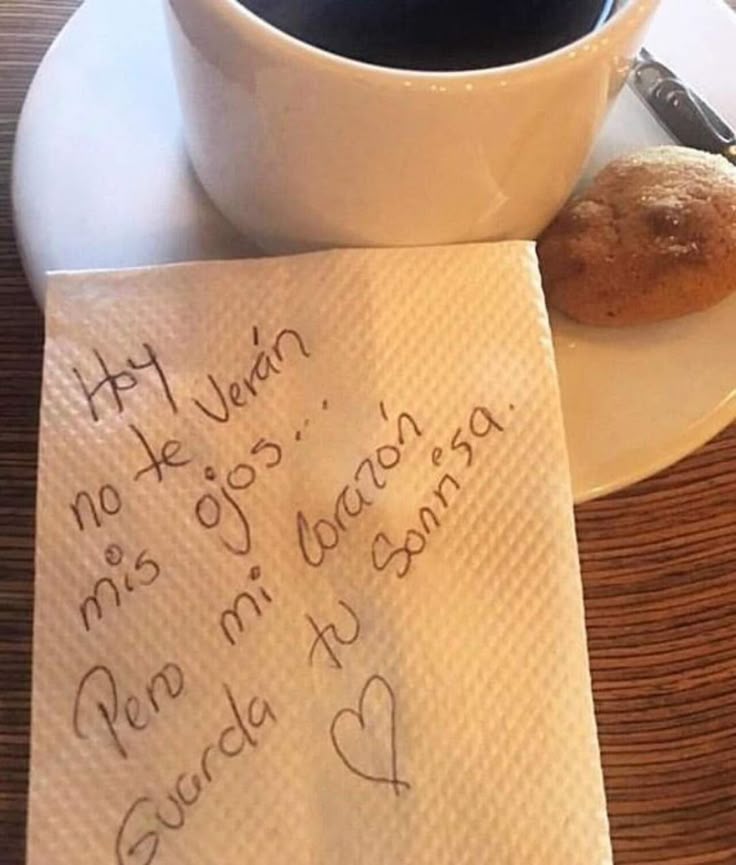 Hoy
no te verán
mis ojos...
Pero mi corazón
Guarda tu sonrisa.